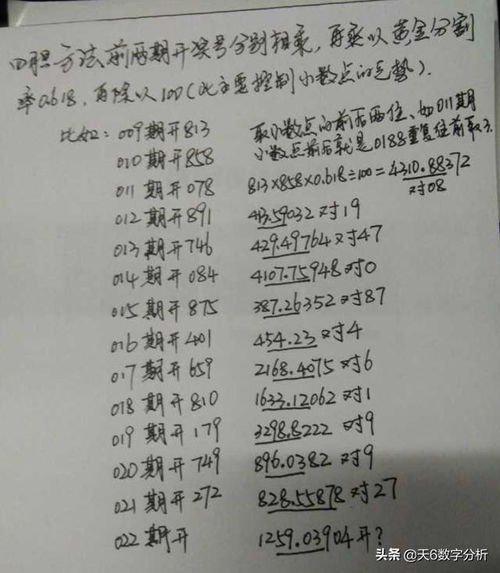 四胆方法前两期开奖号分别相乘,再乘以黄金分割
率0.618,再除以100(此主要控制小数点的走势).
比如:009期开813 取小数点的前后两位、如011期
010期开858 小数点前后就是0188重复往前取3.
011期开078 813×858×0.618÷100=4310.88372
对08
012期开891 413.59032对19
013期开746 429.49764对47
014期开084 4107.75948对0
015期开875 387.26352对87
016期开401 454.23对4
017期开659 2168.4075对6
018期开810 1633.12062对1
019期开179 3298.8222对9
020期开749 896.0382对9
021期开272 828.55878对27
022期开 1259.03904开?
头条 @天6数字分析